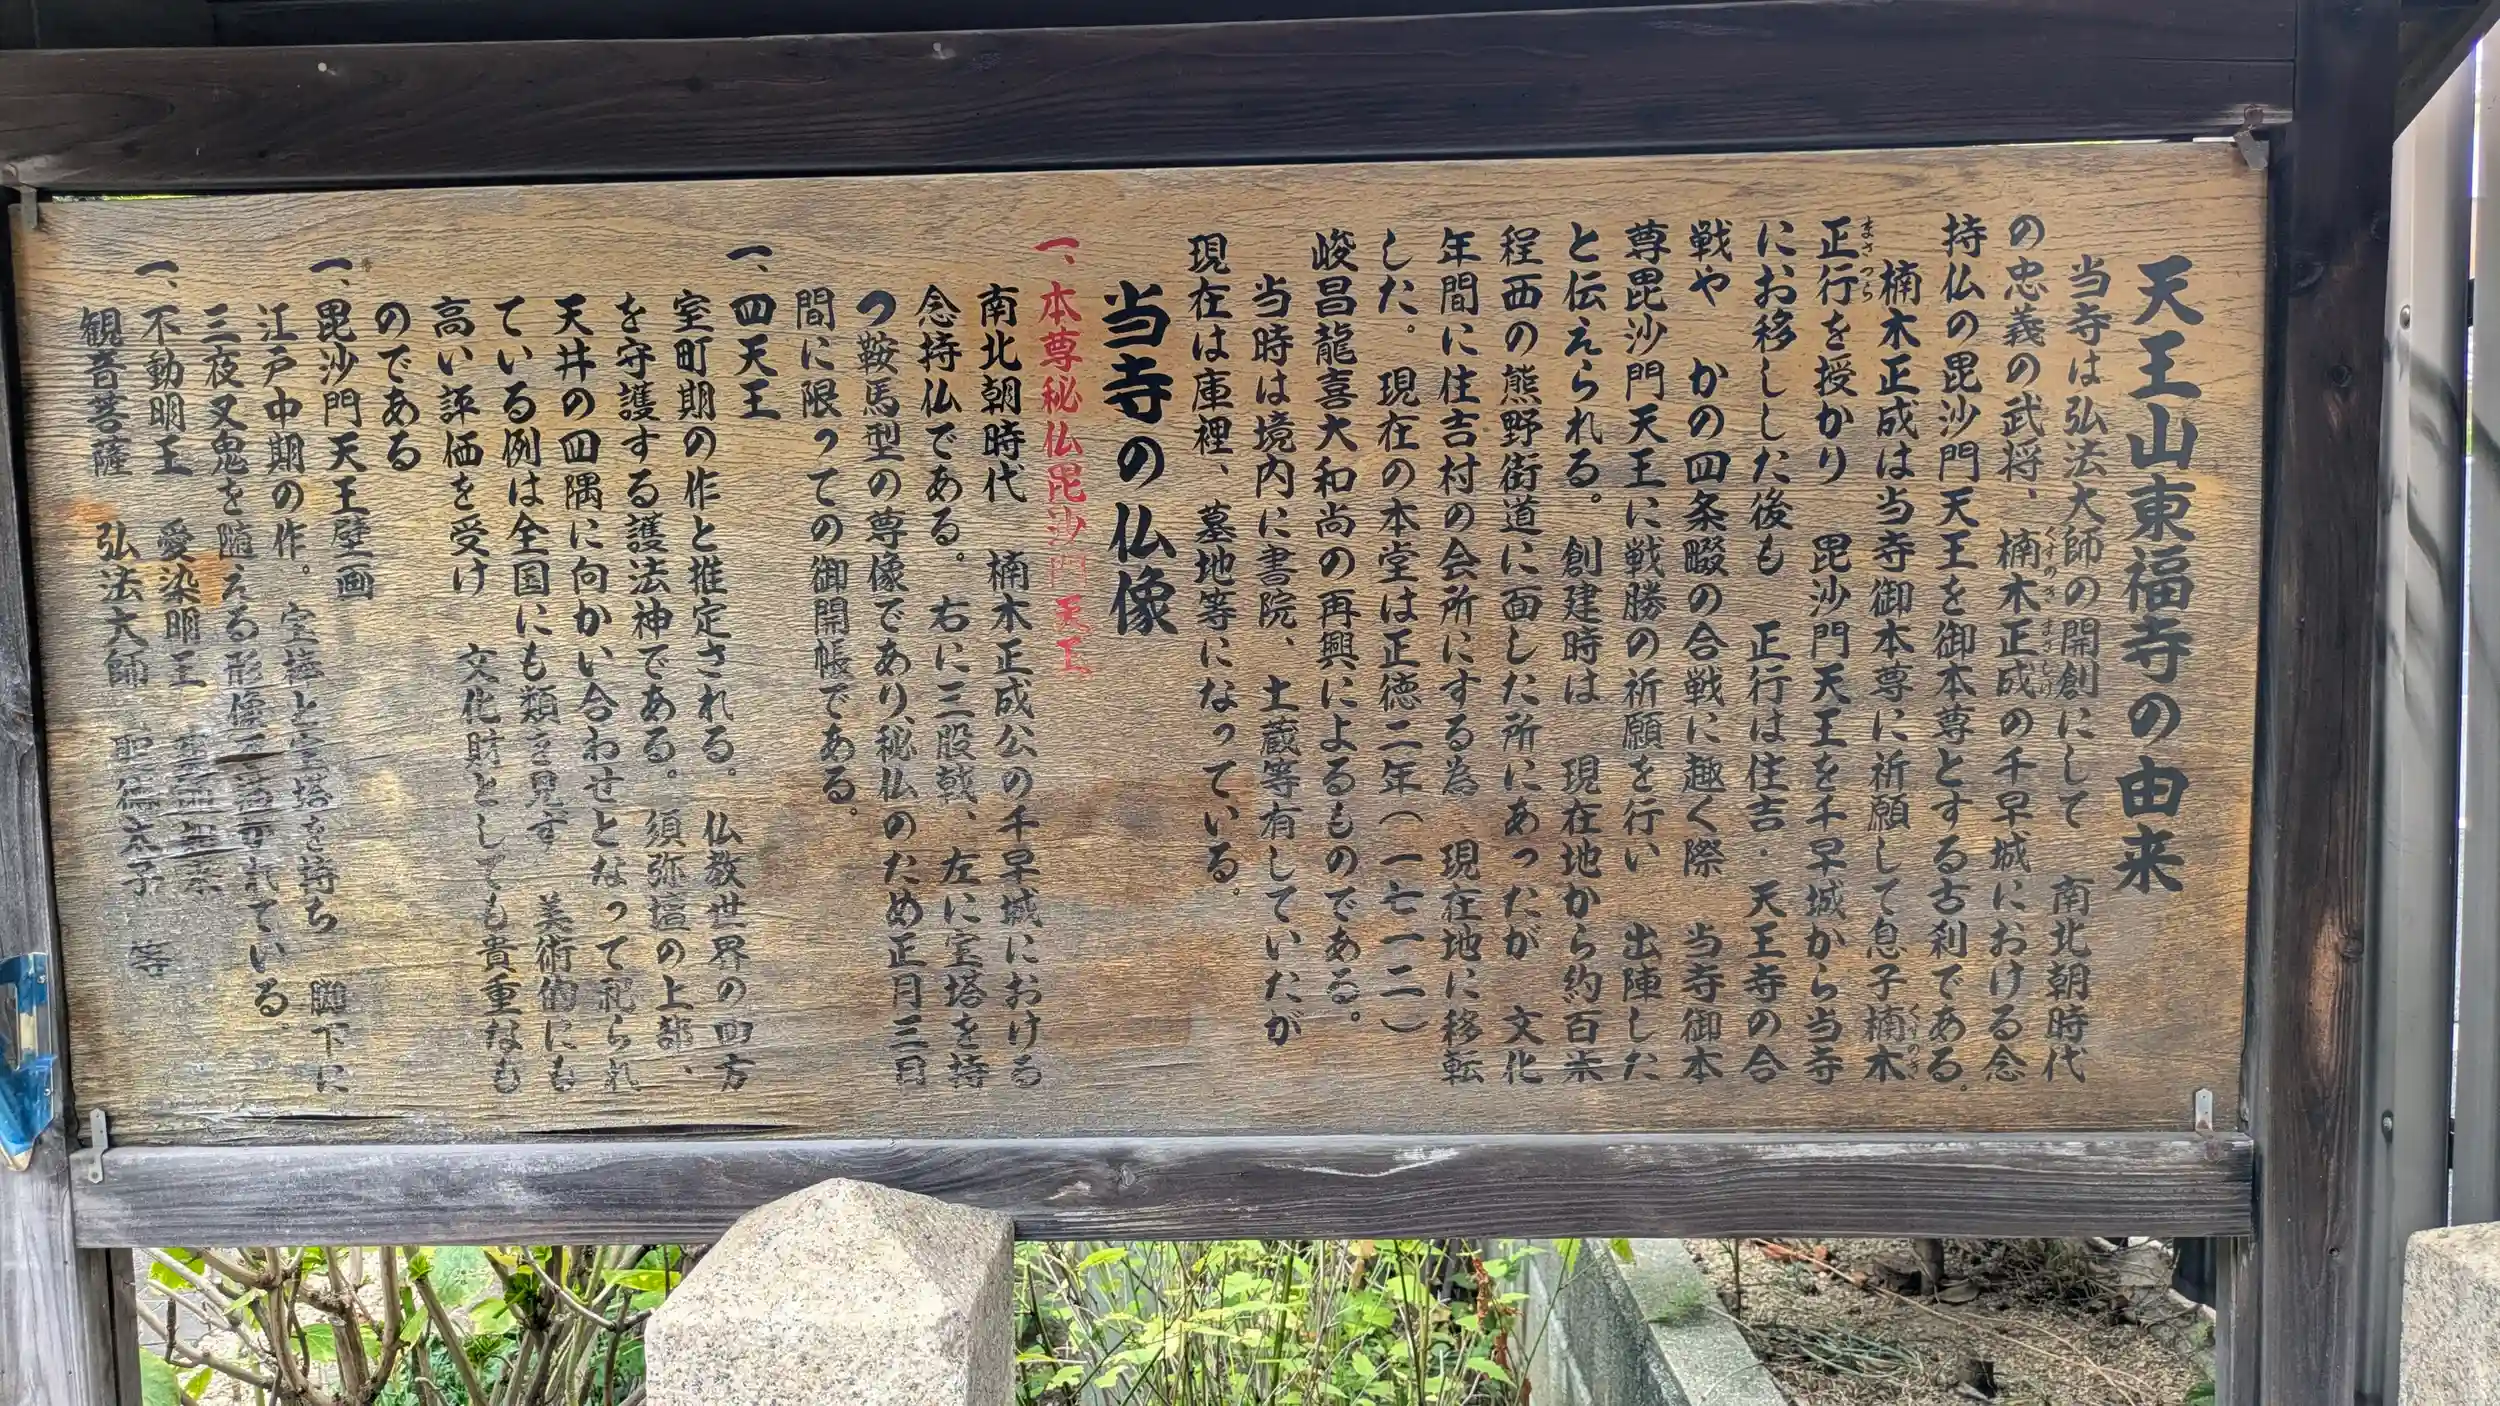 天王山東福寺の由来
当寺は弘法大師の開創にして　南北朝時代
の忠義の武将、楠木正成の千早城における念
くすのき　まさしげ
持仏の毘沙門天王を御本尊とする古刹である。
楠木正成は当寺御本尊に祈願して息子楠木
くすのき
正行を授かり　毘沙門天王を千早城から当寺
まさつら
にお移しした後も　正行は住吉・天王寺の合
戦や　かの四条畷の合戦に趣く際　当寺御本
尊毘沙門天王に戦勝の祈願を行い　出陣した
と伝えられる。創建時は　現在地から約百米
程西の熊野街道に面した所にあったが　文化
年間に住吉村の会所にする為　現在地に移転
した。現在の本堂は正徳二年（一七一二）
峻昌龍喜大和尚の再興によるものである。
当時は境内に書院、土蔵等有していたが
現在は庫裡、墓地等になっている。
当寺の仏像
一、本尊秘仏毘沙門天王
南北朝時代　楠木正成公の千早城における
念持仏である。右に三股戟、左に宝塔を持
つ鞍馬型の尊像であり、秘仏のため正月三日
間に限っての御開帳である。
一、四天王
室町期の作と推定される。仏教世界の四方
を守護する護法神である。須弥壇の上部、
天井の四隅に向かい合わせとなって祀られ
ている例は全国にも類を見ず　美術的にも
高い評価を受け　文化財としても貴重なも
のである
一、毘沙門天王壁画
江戸中期の作。宝棒と宝塔を持ち　脚下に
三夜叉鬼を随える形像で描かれている。
一、不動明王　愛染明王
観音菩薩　弘法大師　聖徳太子　等